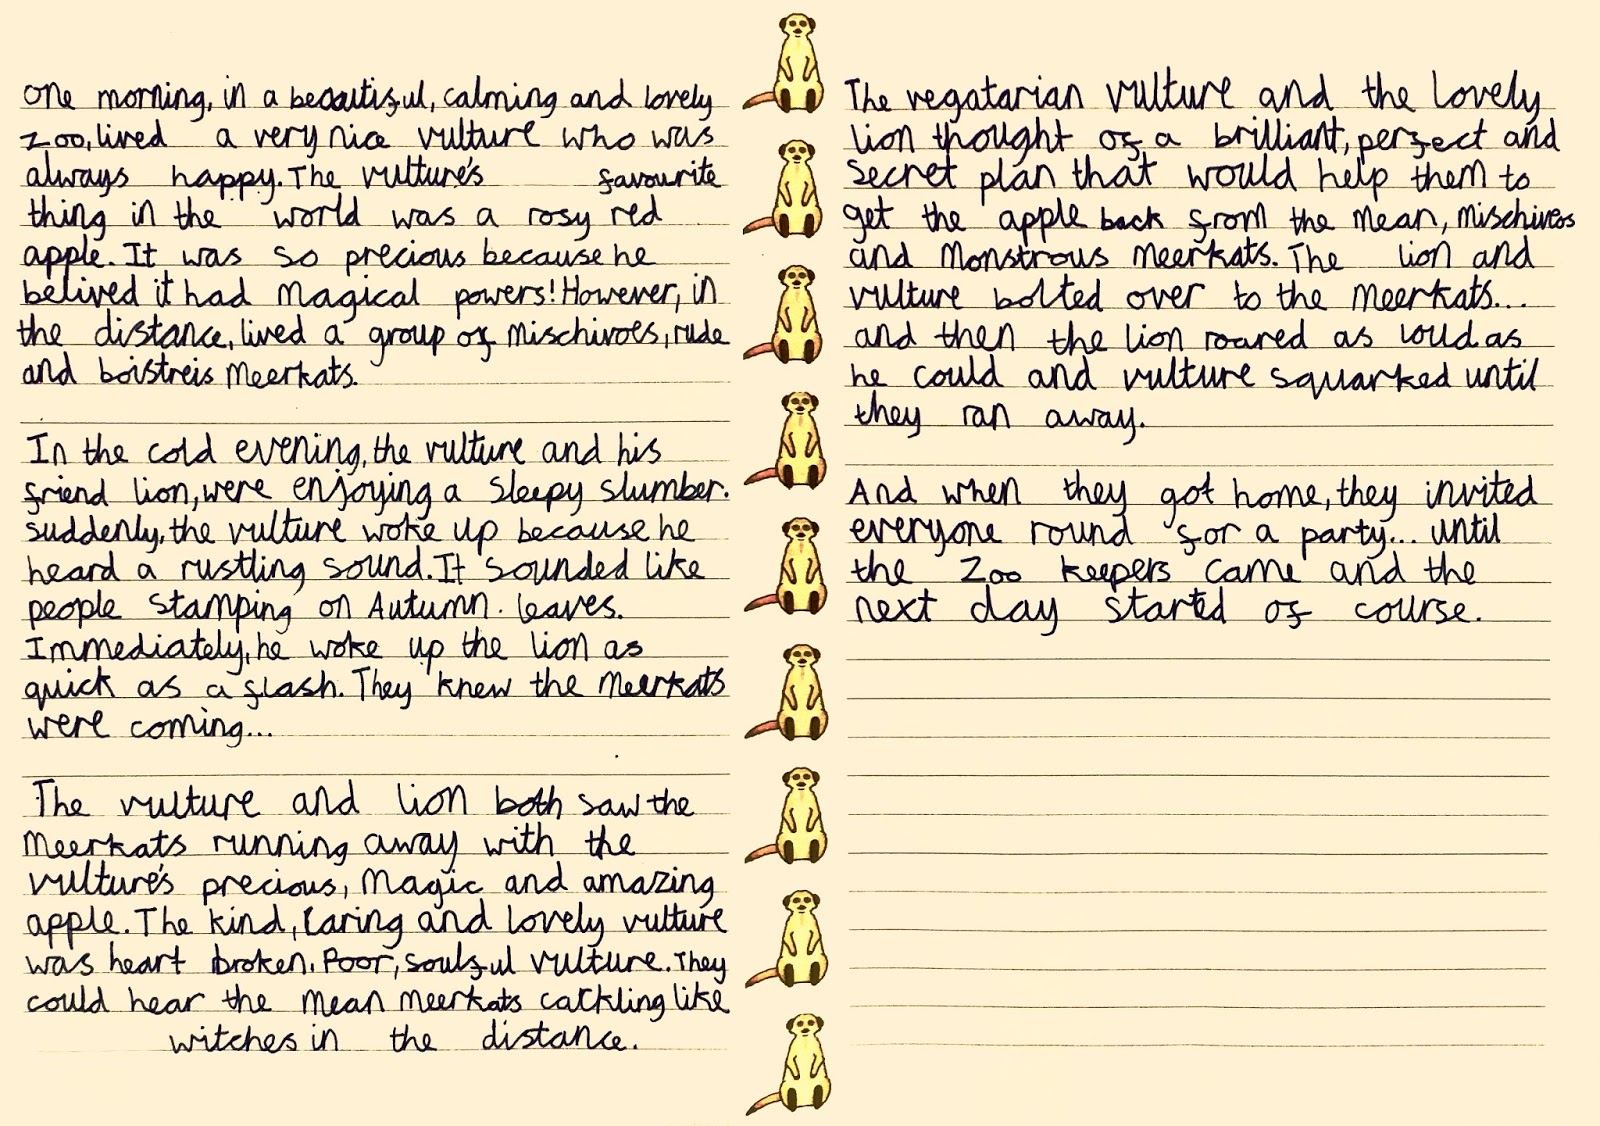 One morning, in a beautiful, calming and lovely
zoo, lived a very nice vulture who was
always happy. The vulture's favourite
thing in the world was a rosy red
apple. It was so precious because he
belived it had Magical powers! However, in
the distance, lived a group of Mischivoes, rude
and boistreis Meerkats.
In the cold evening, the vulture and his
friend lion, were enjoying a sleepy slumber.
suddenly, the vulture woke up because he
heard a rustling sound. It sounded like
people stamping on Autumn. leaves.
Immediately, he woke up the lion as
quick as a flash. They knew the Meerkats
were coming...
The vulture and lion both saw the
Meerkats running away with the
vulture's precious, Magic and amazing
apple. The kind, caring and lovely vulture
was heart broken. Poor, soulful vulture. They
could hear the Mean Meerkats cackling like
witches in the distance.
The vegatarian vulture and the lovely
lion thought of a brilliant, perfect and
secret plan that would help them to
get the apple back from the Mean, Mischiveos
and Monstrous Meerkats. The lion and
vulture bolted over to the Meerkats...
and then the lion roared as loud as
he could and vulture squarked until
they ran away.
And when they got home, they invited
everyone round for a party... until
the Zoo keepers came and the
next day started of course.